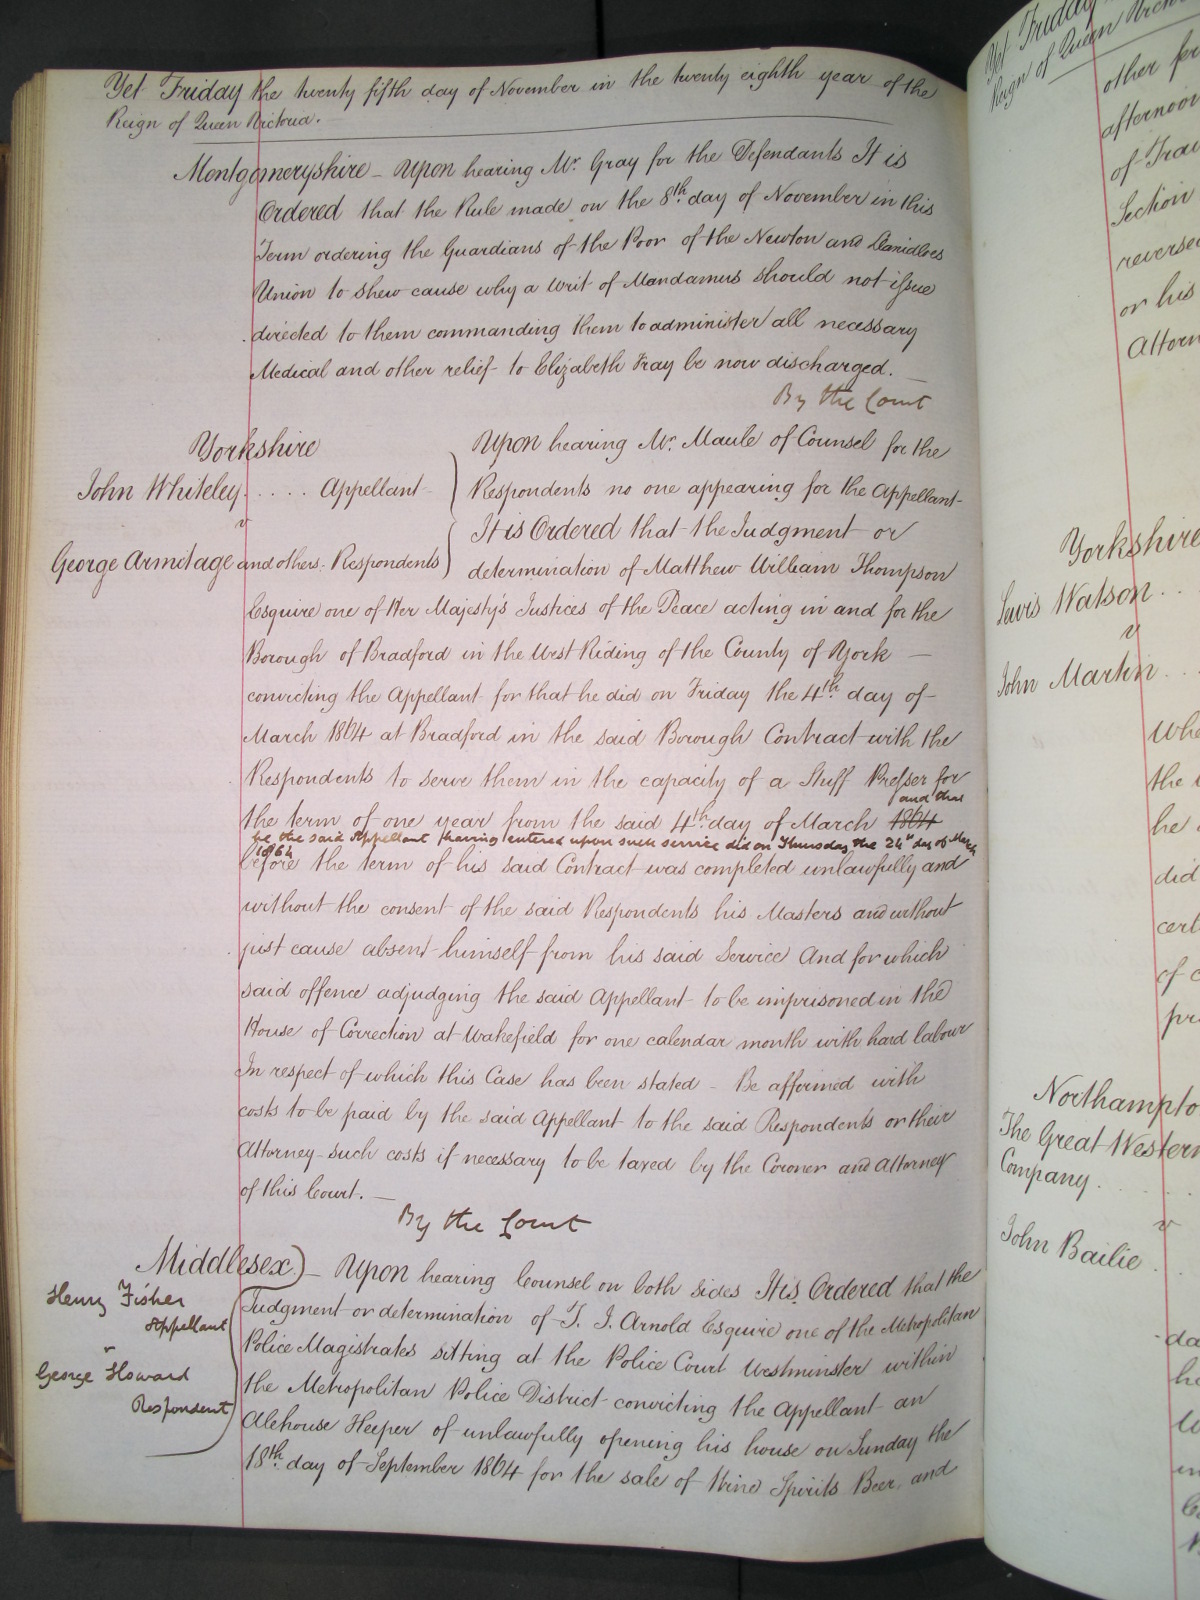 Yet Friday the twenty fifth day of November in the twenty eighth year of the
Reign of Queen Victoria.
Montgomeryshire – Upon hearing Mr. Gray for the Defendants It is
Ordered that the Rule made on the 8th. day of November in this
Term ordering the Guardians of the Poor of the Newton and Llanidloes
Union to shew cause why a Writ of Mandamus should not issue
directed to them commanding them to administer all necessary
Medical and other relief to Elizabeth Fray be now discharged.
By the Court
Yorkshire
John Whiteley . . . . . Appellant
v
George Armitage and others. Respondents
Upon hearing Mr. Maule of Counsel for the
Respondents no one appearing for the Appellant
It is Ordered that the Judgment or
determination of Matthew William Thompson
Esquire one of Her Majesty's Justices of the Peace acting in and for the
Borough of Bradford in the West Riding of the County of York –
convicting the Appellant for that he did on Friday the 4th. day of
March 1864 at Bradford in the said Borough Contract with the
Respondents to serve them in the capacity of a Stuff Presser for
the term of one year from the said 4th. day of March 1864 and that
he the said Appellant having entered upon such service did on Thursday the 24th day of March
1864
before the term of his said Contract was completed unlawfully and
without the consent of the said Respondents his Masters and without
just cause absent himself from his said Service And for which
said offence adjudging the said Appellant to be imprisoned in the
House of Correction at Wakefield for one calendar month with hard labour
In respect of which this Case has been stated – Be affirmed with
costs to be paid by the said Appellant to the said Respondents or their
Attorney such costs if necessary to be taxed by the Coroner and Attorney
of this Court. –
By the Court
Middlesex) – Upon hearing Counsel on both sides It is Ordered that the
Henry Fisher
Appellant
v
George Howard
Respondent
Judgment or determination of T. J. Arnold Esquire one of the Metropolitan
Police Magistrates sitting at the Police Court Westminster within
the Metropolitan Police District convicting the Appellant an
Alehouse Keeper of unlawfully opening his house on Sunday the
18th. day of September 1864 for the sale of Wine Spirits Beer, and
Yet Friday
Reign of Queen
other
afternoon
of
Section
or his
Yorkshire
Lewis Watson . .
v
John Martin . . .
the
he
did
of
The Great Western
Company . . .
v
John Bailie .